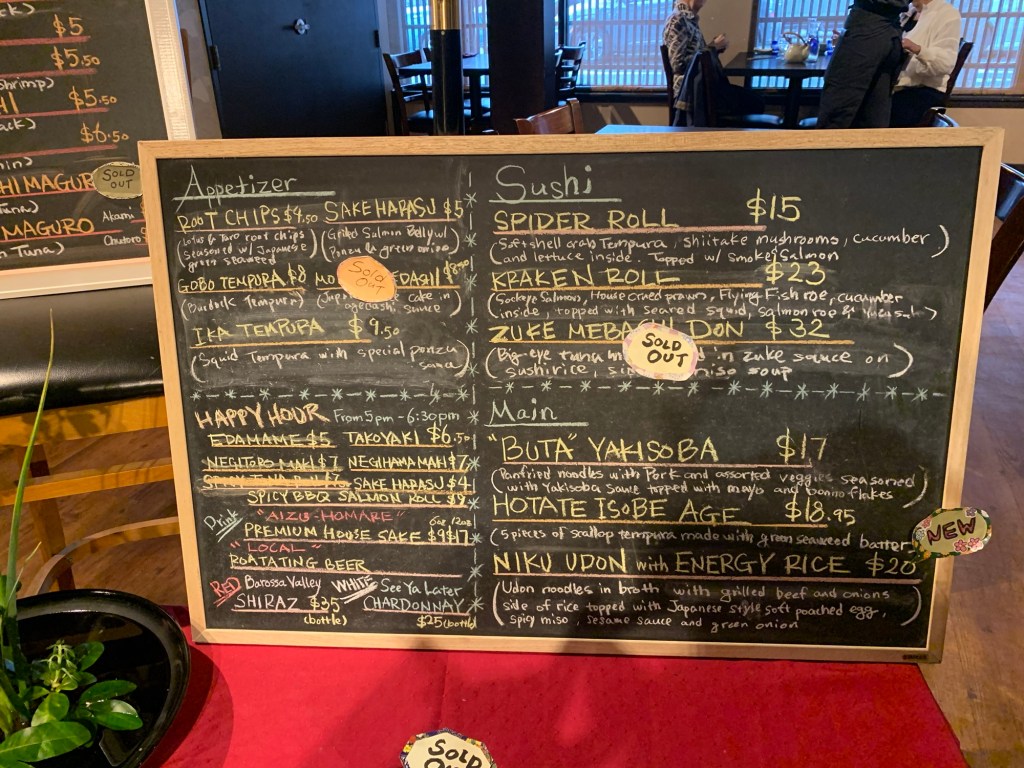 $5
$5.50
Shrimp)
HI $5.50
ack)
$6.50
SOLD OUT
HI MAGUR
Tuna)
MAGURO Akami
Tuna)
Appetizer
ROOT CHIPS $4.50 SAKE HARASU $5
(Lotus & Taro root chips seasoned w/ Japanese green seaweed)
(Grilled Salmon Belly w/ Ponzu & green onion)
GOBO TEMPURA $8 MO EDASHI $8.50
SOLD OUT
(Burdock Tempura) cake in agedashi sauce)
IKA TEMPURA $9.50
(Squid Tempura with special ponzu sauce)
HAPPY HOUR From 5pm - 6:30pm
EDAMAME $5 TAKOYAKI $6.50
NEGITORO MAKI $7 NEGIHAMA MAKI $7
SPICY TUNA ROLL $7 SAKE HARASU $4
SPICY BBQ SALMON ROLL $9
Drink "AIZU-HOMARE" 6oz 12oz
PREMIUM HOUSE SAKE $9 $17
"LOCAL"
ROATATING BEER
RED Barossa Valley WHITE See Ya Later
SHIRAZ $35 CHARDONNAY
(bottle) $25 (bottle)
Sushi
SPIDER ROLL $15
(Softshell crab Tempura, shiitake mushrooms, cucumber
and lettuce inside. Topped w/ Smoked Salmon)
KRAKEN ROLL $23
(Sockeye Salmon, House cured prawn, Flying Fish roe, cucumber
inside, topped with seared squid, salmon roe &
ZUKE MEBA DON $32
SOLD OUT
(Big-eye tuna m d in zuke sauce on
sushi rice, miso soup)
Main
"BUTA" YAKISOBA $17
(Panfried noodles with Pork and assorted veggies seasoned
with Yakisoba sauce topped with mayo and bonito flakes)
HOTATE ISOBE AGE $18.95
(5 pieces of scallop tempura made with green seaweed batter
NEW
NIKU UDON with ENERGY RICE $20
(Udon noodles in broth with grilled beef and onions
side of rice topped with Japanese style soft poached egg,
spicy miso, sesame sauce and green onion)
SOLD
OUT